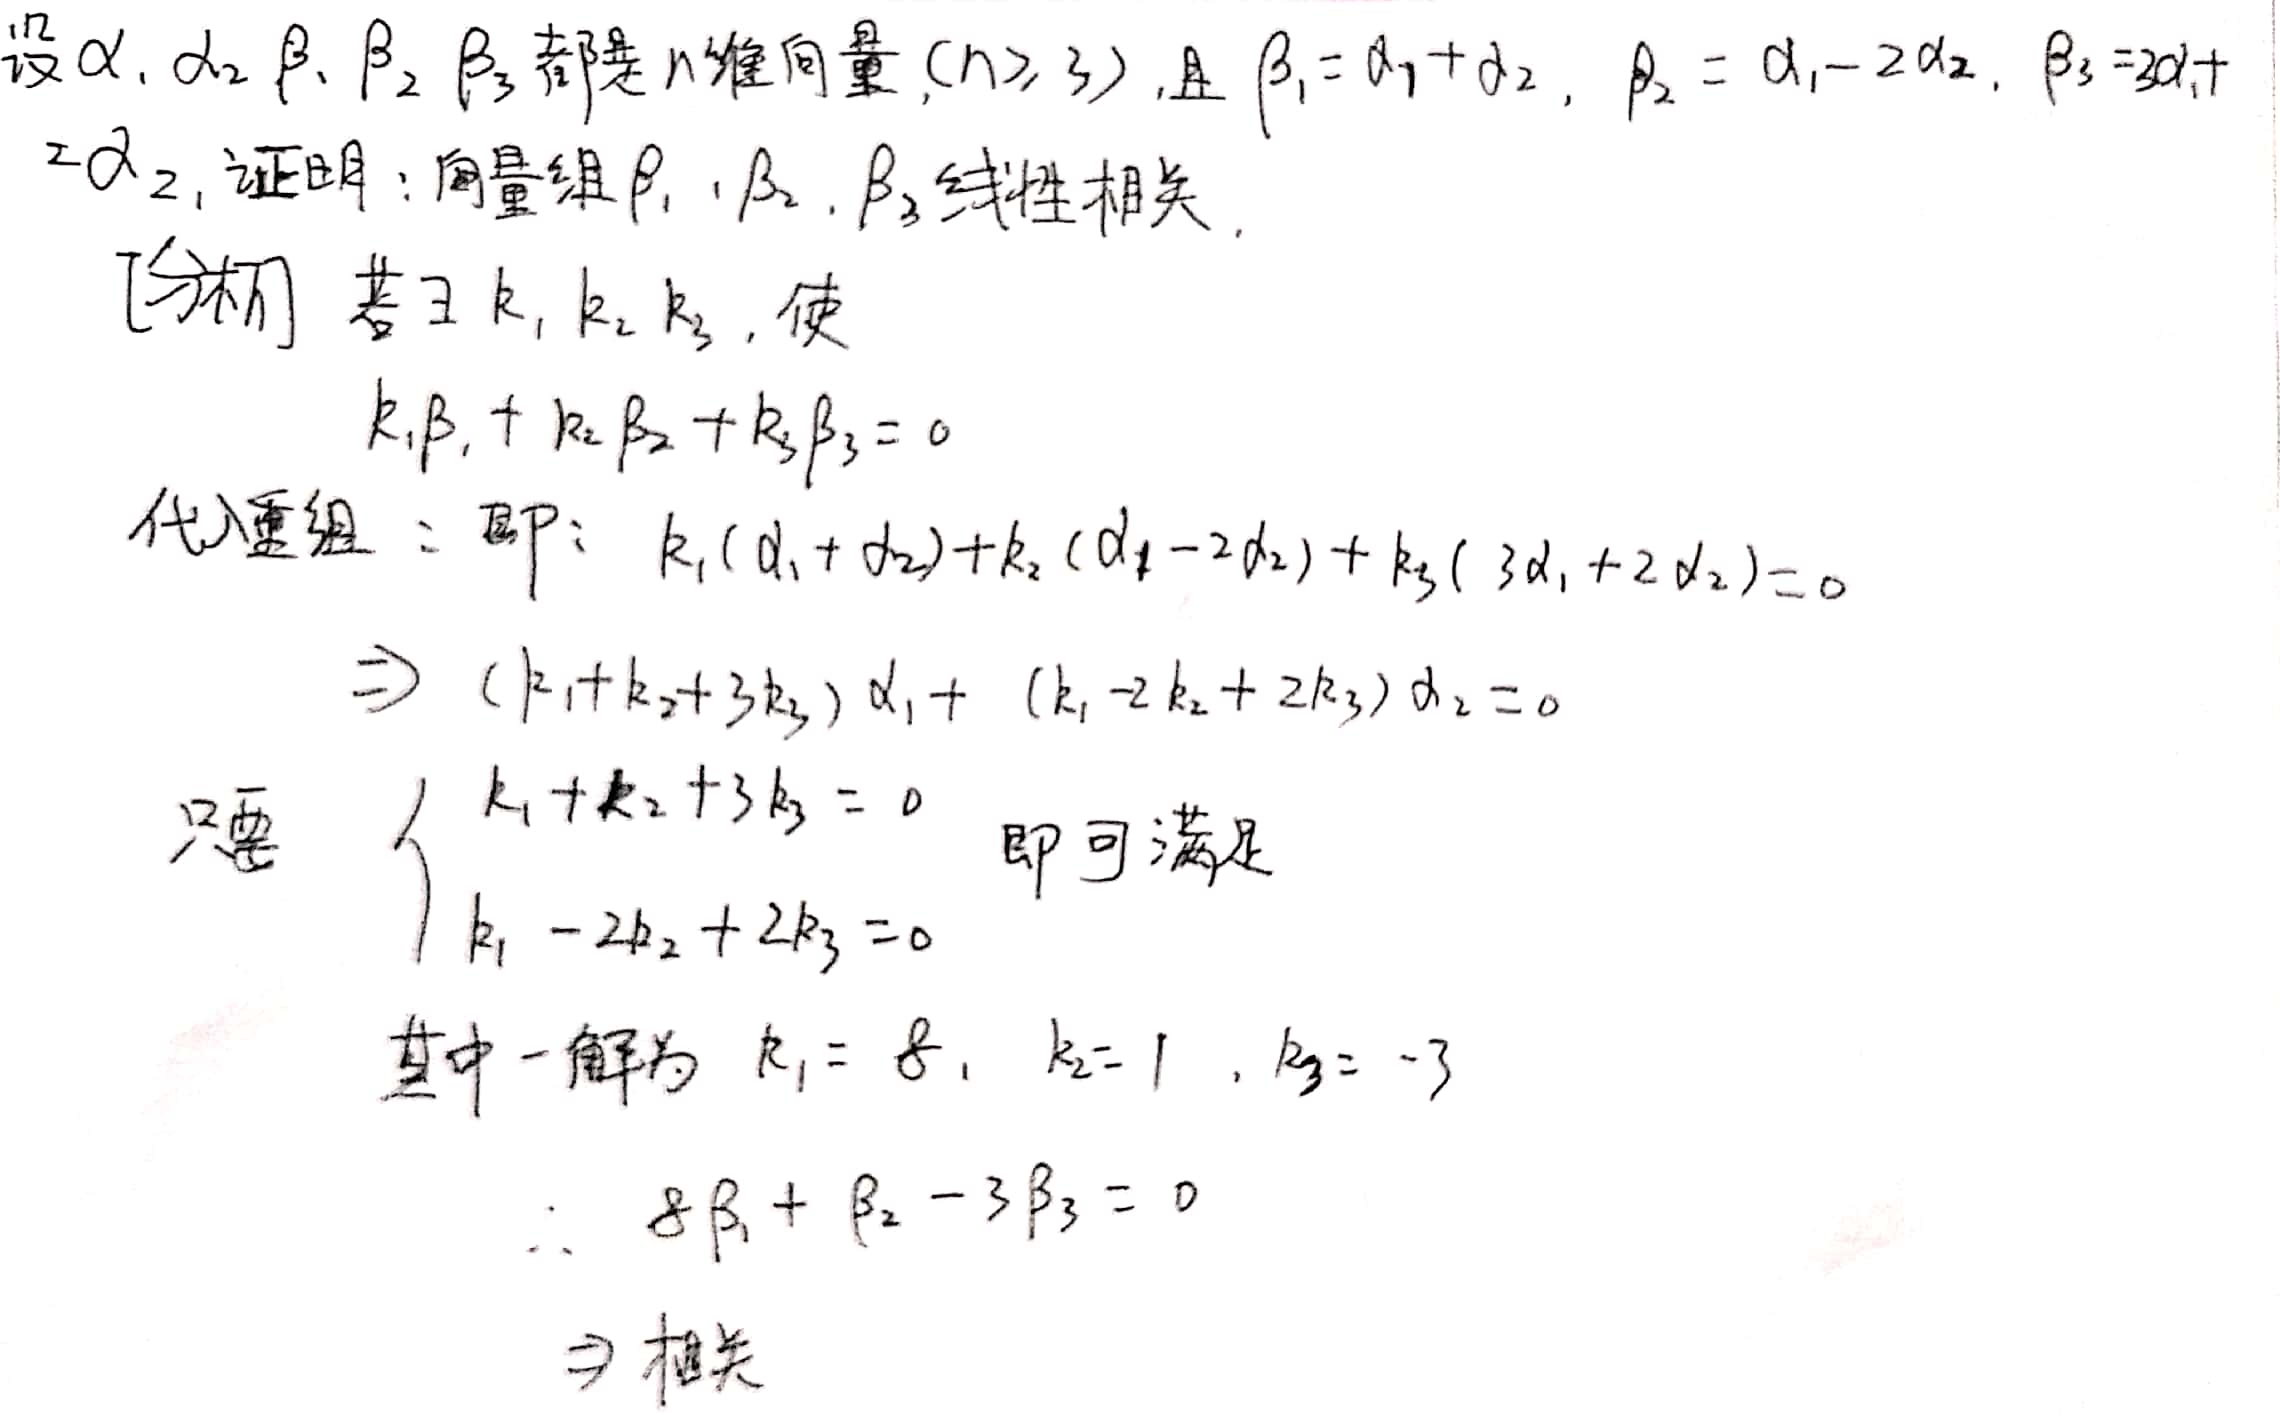 设α₁ α₂ β₁ β₂ β₃ 都是n维向量,(n≥3),且 β₁=α₁+α₂, β₂=α₁-2α₂, β₃=3α₁+
2α₂,证明:向量组β₁,β₂,β₃线性相关.
[分析] 若∃ k₁ k₂ k₃,使
k₁β₁+k₂β₂+k₃β₃=0
代入重组:即: k₁(α₁+α₂)+k₂(α₁-2α₂)+k₃(3α₁+2α₂)=0
⇒ (k₁+k₂+3k₃)α₁+(k₁-2k₂+2k₃)α₂=0
只要 { k₁+k₂+3k₃=0 即可满足
k₁-2k₂+2k₃=0
其中一解为 k₁=8, k₂=1, k₃=-3
∴ 8β₁+β₂-3β₃=0
⇒相关